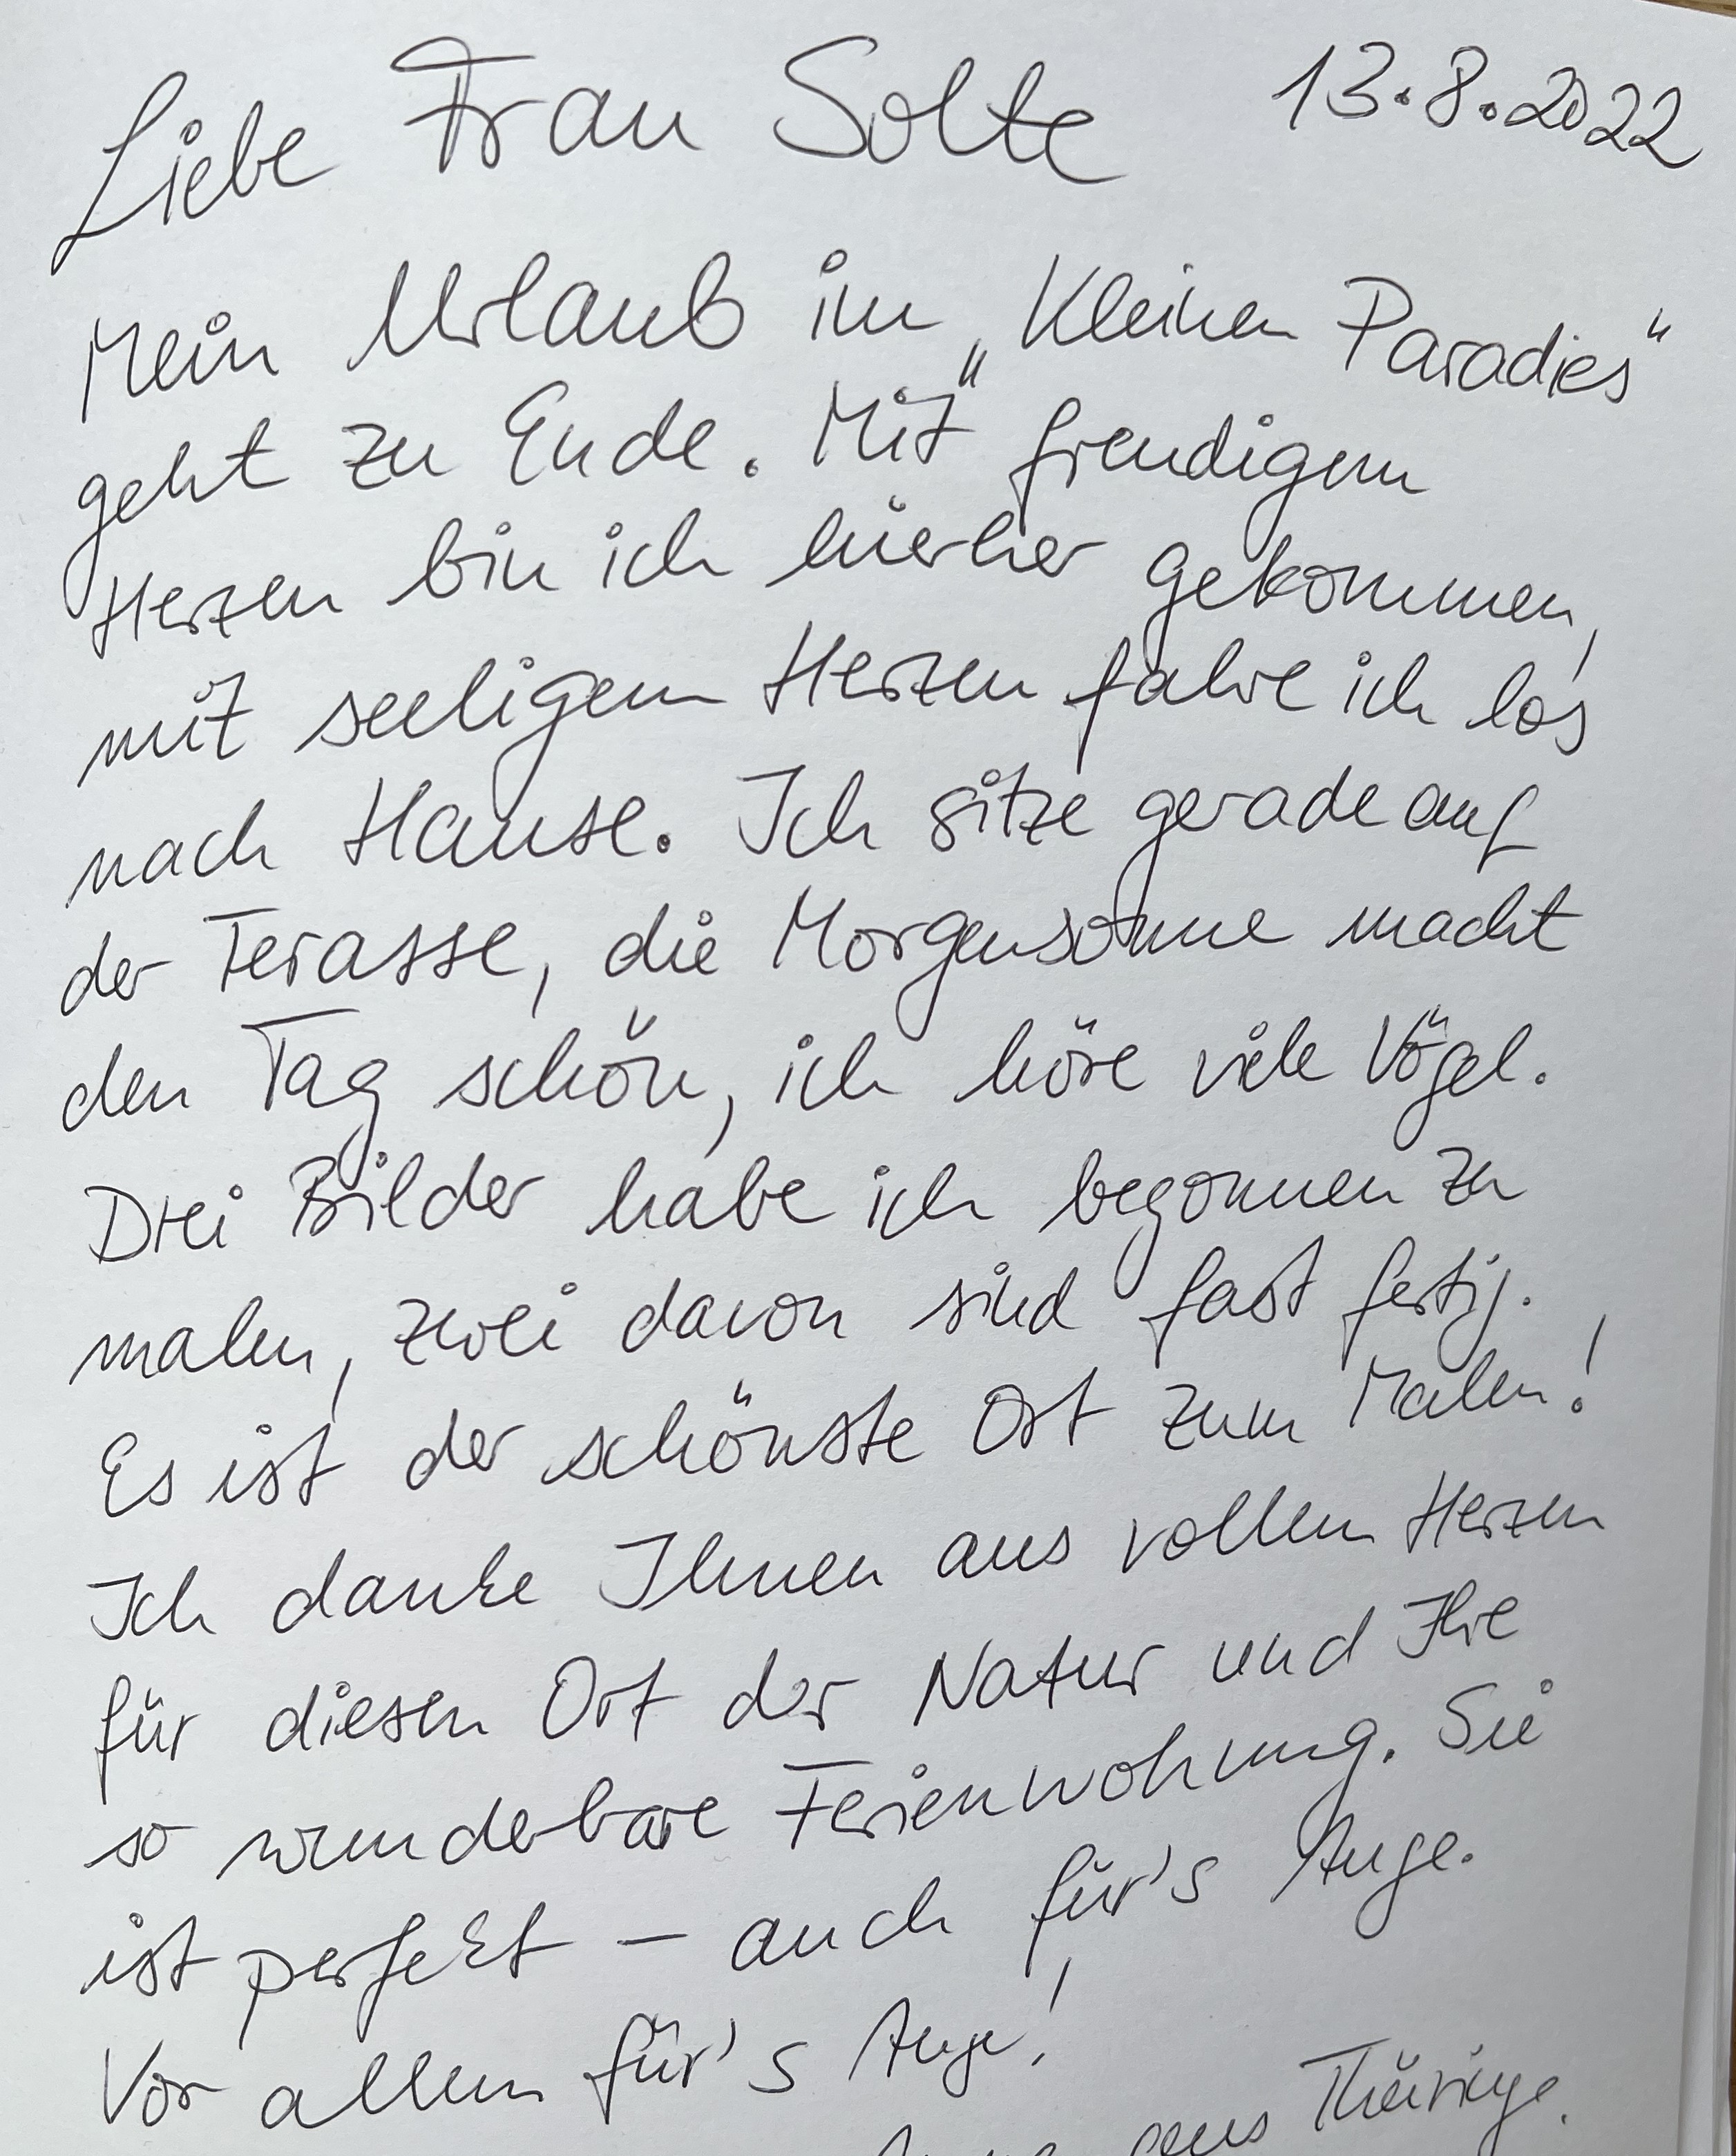 Liebe Frau Solte 13.8.2022
Mein Urlaub im „Kleinen Paradies"
geht zu Ende. Mit freudigem
Herzen bin ich hierher gekommen,
mit seeligem Herzen fahre ich los
nach Hause. Ich sitze gerade auf
der Terasse, die Morgensonne macht
den Tag schön, ich höre viele Vögel.
Drei Bilder habe ich begonnen zu
malen, zwei davon sind fast fertig.
Es ist der schönste Ort zum Malen!
Ich danke Ihnen aus vollem Herzen
für diesen Ort der Natur und Ihre
so wunderbare Ferienwohnung. Sie
ist perfekt – auch für's Auge.
Vor allem für's Auge!
aus